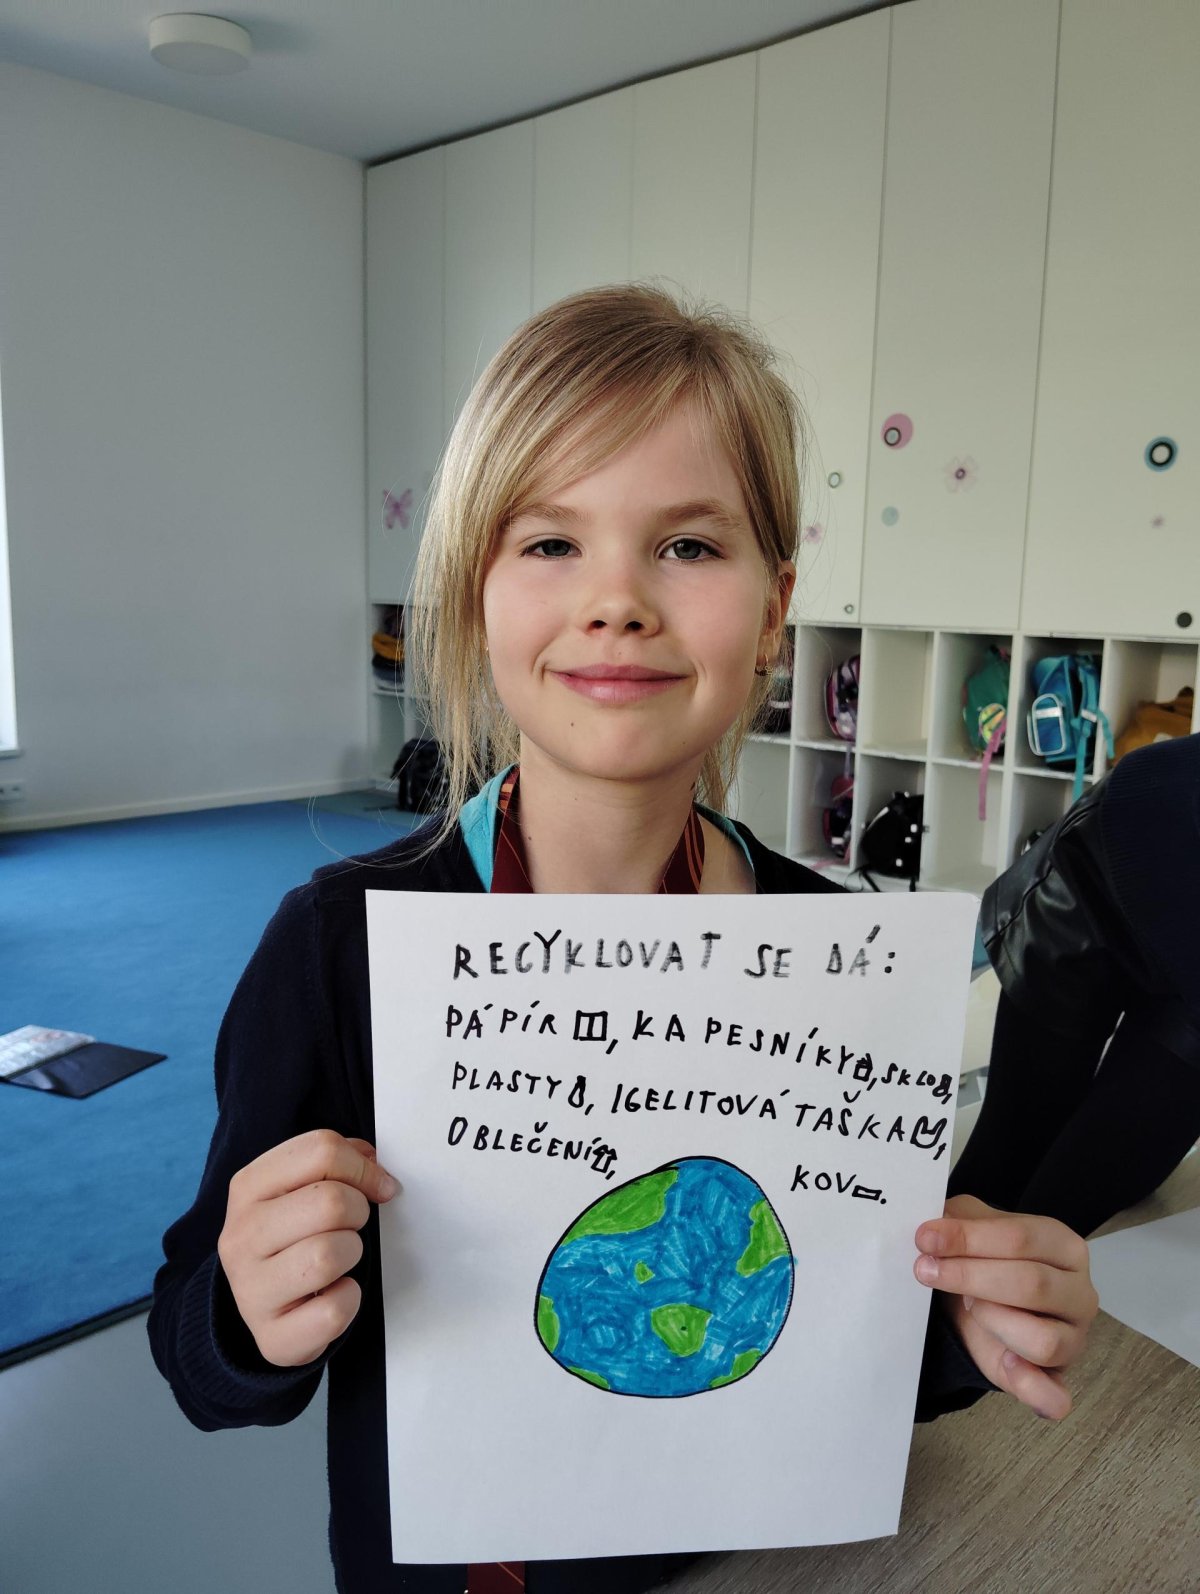 RECYKLOVAT SE DÁ:
PÁPÍR, KAPESNÍKY, SKLO,
PLASTY, IGELITOVÁ TAŠKA,
OBLEČENÍ, KOV.